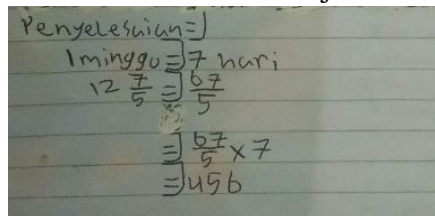 Penyelesaian =)
1 minggu =) 7 hari
12 7/5 =) 67/5
=) 67/5 × 7
=) 456